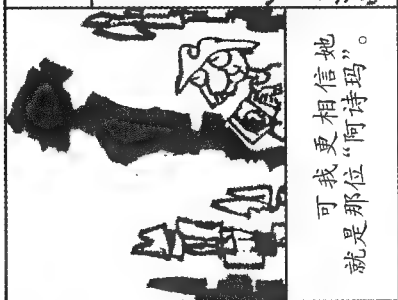 可我更相信她
就是那位“阿诗玛”。